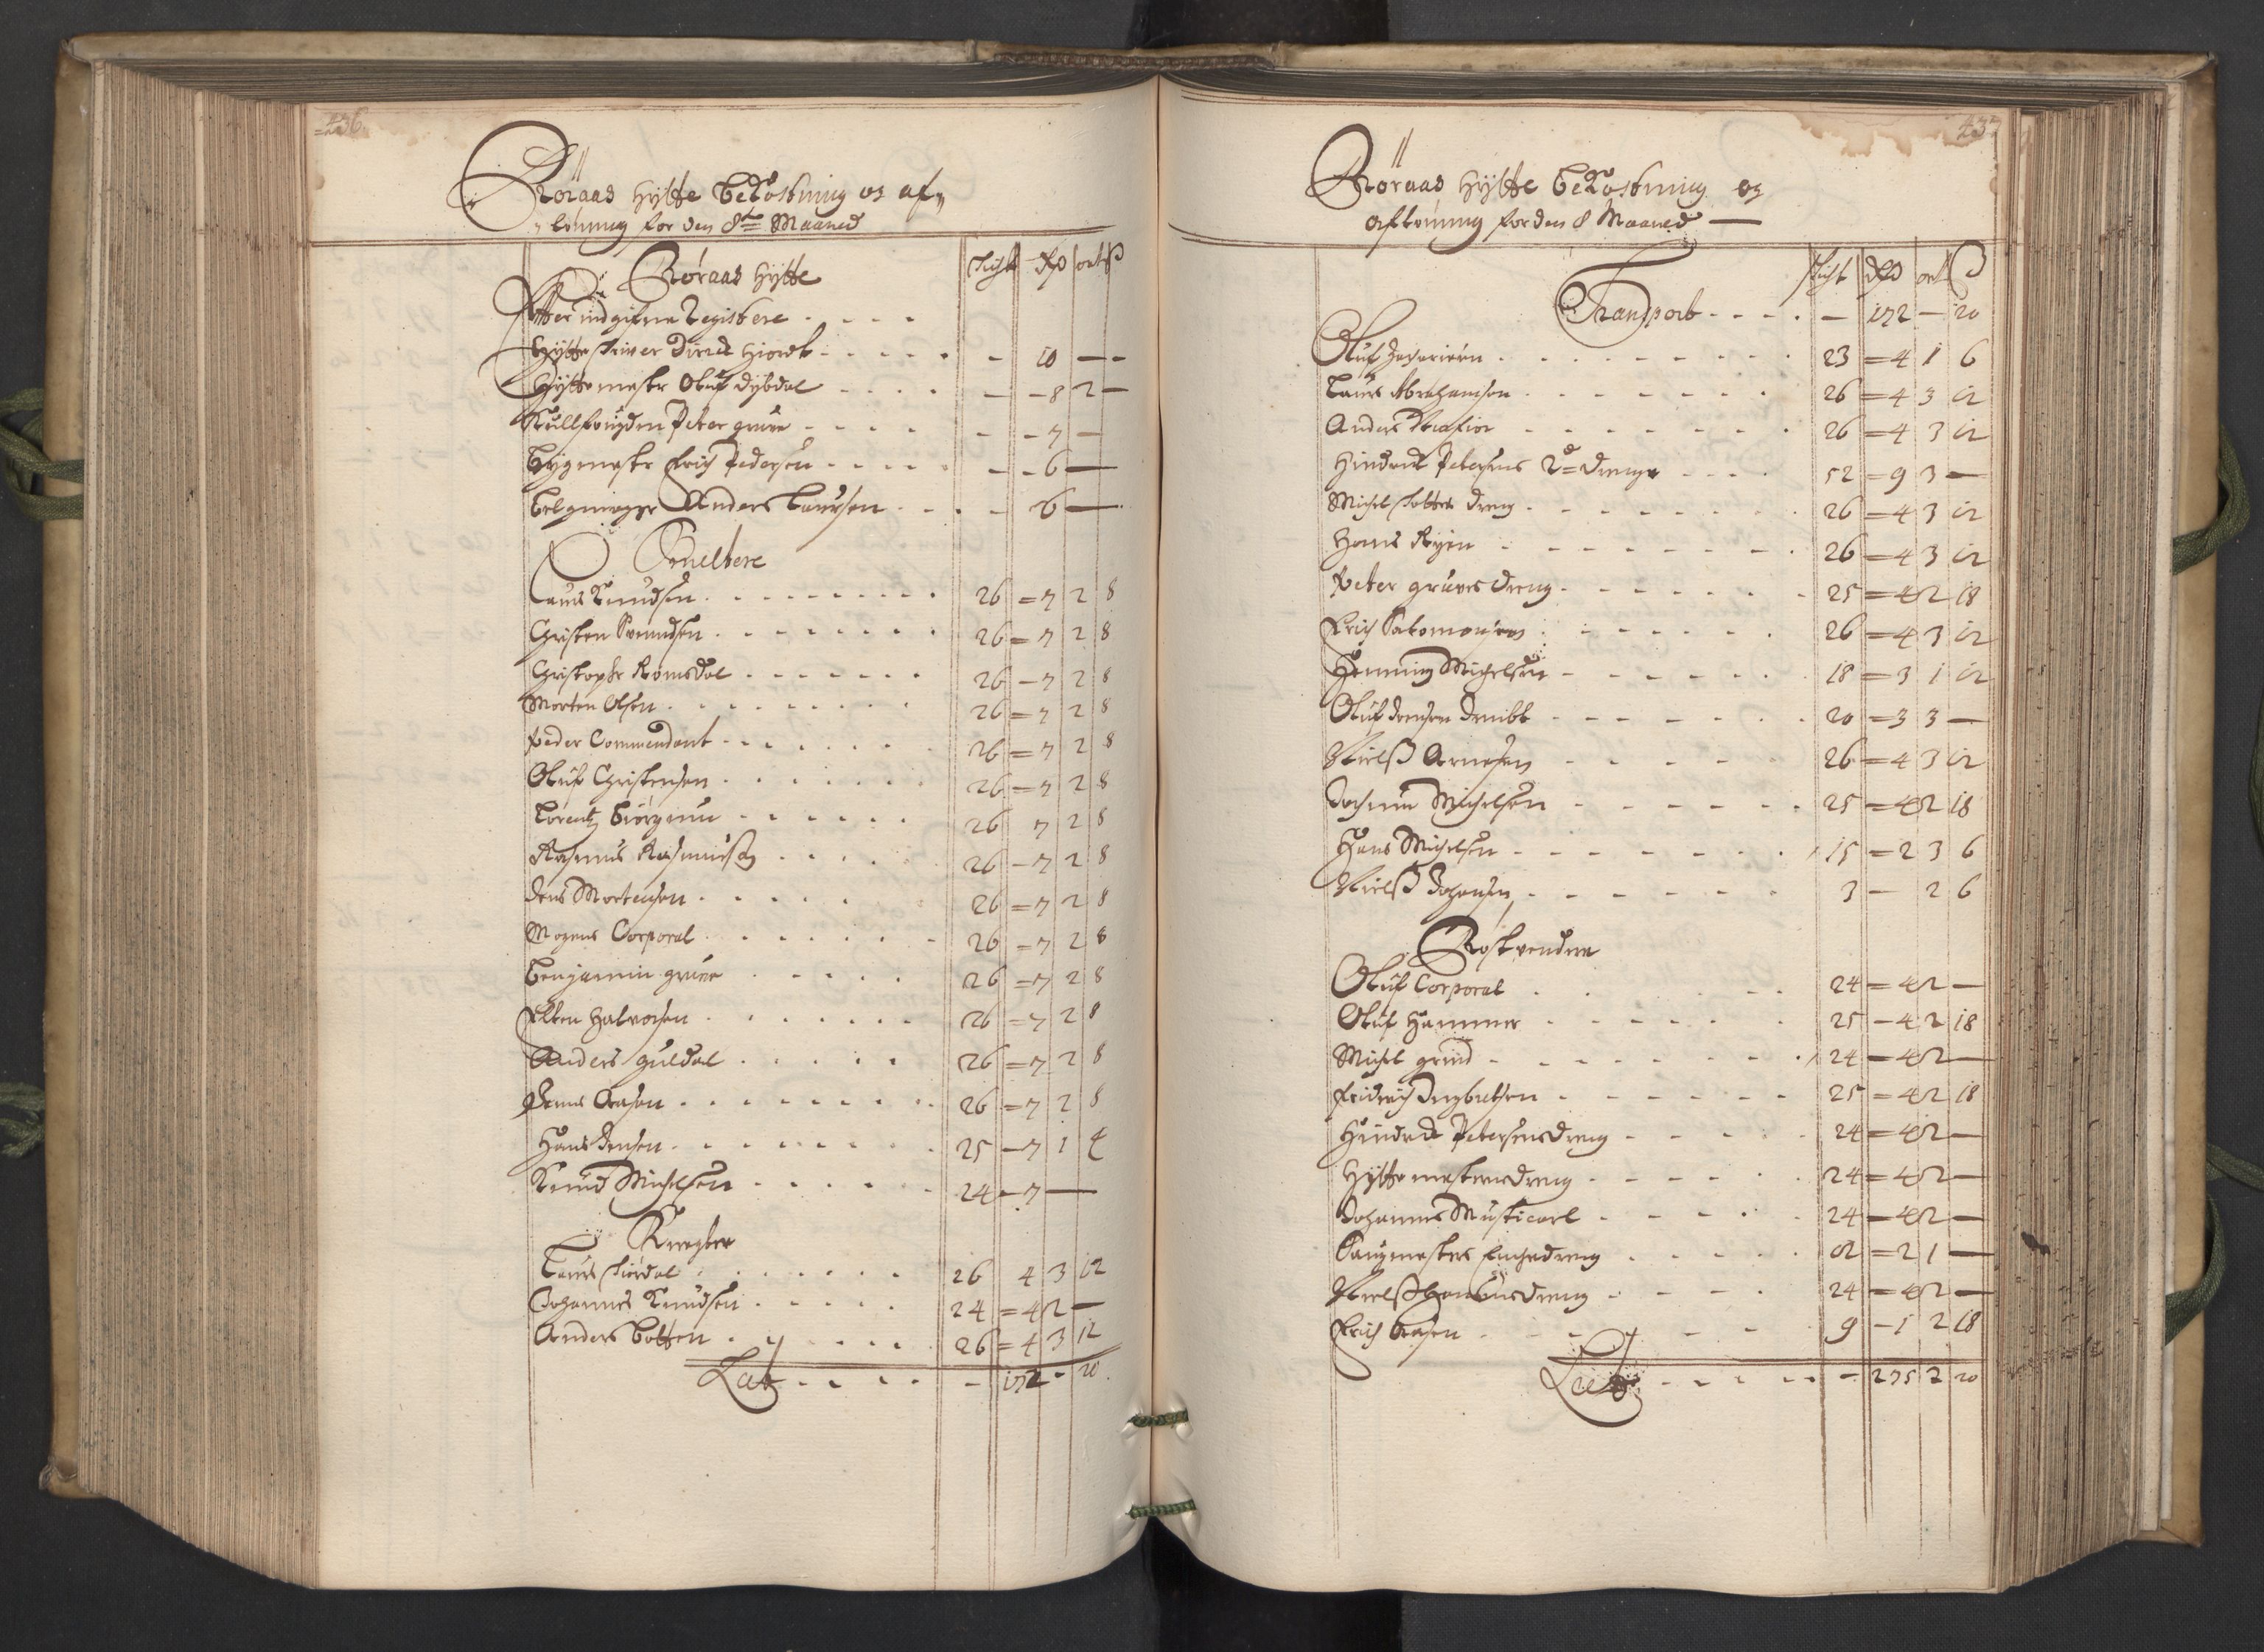 436
Röraas Hytte Bekostning og af,,
,, lönning for den 8de Maaned
Röraas Hytte
Schicht Rdr ort ß
Efter indgifne Registere - - - -
Hytteschriver Dirick Hiordt - - - - - - 10 - -
Hyttemester Oluf Dybdal - - - - - 8 2 -
Kullfougden Peter gruve - - - - - 7 -
Bygmester Erich Pedersen - - - - - 6 -
Belgmager Anders Laursen - - - - 6 -
Smeltere
Laurs Knudsen - - - - 26 = 7 2 8
Christen Svendsen - - - - 26 = 7 2 8
Christopher Romsdal - - - - 26 - 7 2 8
Morten Olsen - - - - 26 = 7 2 8
Peder Commendant - - - - 26 = 7 2 8
Oluf Christensen - - - - 26 = 7 2 8
Lorentz Biörgmm - - - - 26 7 2 8
Rasmus Rasmusen - - - - 26 - 7 2 8
Jens Mortensen - - - - 26 = 7 2 8
Mogens Corporal - - - - 26 = 7 2 8
Benjamin gruve - - - - 26 = 7 2 8
Elten Halvorsen - - - - 26 = 7 2 8
Anders guldal - - - - 26 = 7 2 8
Jens Aasen - - - - 26 = 7 2 8
Hans Jensen - - - - 25 - 7 1 4
Knud Michelsen - - - - 24 - 7 -
Knegter
Laurs Stördal - - - - 26 4 3 12
Johannes Knudsen - - - - 24 = 4 2 -
Anders Botten - - - - 26 = 4 3 12
Lat - - - - - 172 - 20
437
Röraas Hytte Bekostning og
aflönning for den 8 Maaned
Schicht Rdr ort ß
Transport - - - - - 172 - 20
Oluf Zachariesen - - - - 23 = 4 1 6
Laurs Abrahamson - - - - 26 = 4 3 12
Anders - - - - 26 = 4 3 12
Hindrick Petersens 2de Drenge - - - 52 = 9 3 -
Michel Schotters Dreng - - - - 26 = 4 3 12
Hans Ryen - - - - 26 = 4 3 12
Peter gruves Dreng - - - - 25 = 4 2 18
Erich Salomonsen - - - - 26 = 4 3 12
Henning Michelsen - - - - 18 = 3 1 12
Oluf Jensen - - - - 20 = 3 3 -
Nielß Arnesen - - - - 26 = 4 3 12
Jochum Michelsen - - - - 25 = 4 2 18
Hans Michelsen - - - - 15 = 2 3 6
Nielß Johansen - - - - 3 - 2 6
Röstvendere
Oluf Corporal - - - - 24 = 4 2 -
Oluf Hammer - - - - 25 - 4 2 18
Michel grind - - - - 24 = 4 2 -
Fridrich Ingbretsen - - - - 25 = 4 2 18
Hindrick Petersens Dreng - - - - 24 = 4 2 -
Hyttemesterens Dreng - - - - 24 = 4 2 -
Johannes Musticarl - - - - 24 = 4 2 -
Saugmesters Dreng - - - - 12 = 2 1 -
Nielß Dreng - - - - 24 = 4 2 -
Erich Aasen - - - - 9 - 1 2 18
Lat - - - - - 275 2 20